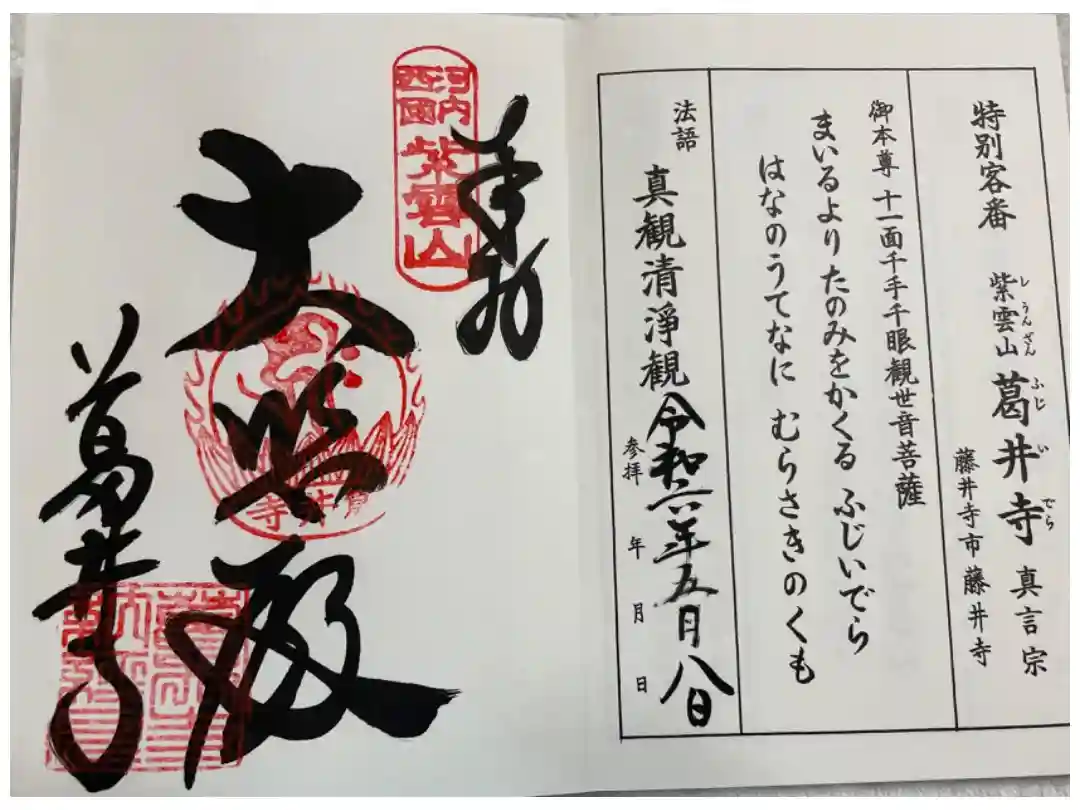 特別客番 紫雲山 葛井寺 真言宗
しうんざん ふじいでら
藤井寺市藤井寺
御本尊 十一面千手千眼観世音菩薩
まいるよりたのみをかくる ふじいでら
はなのうてなに むらさきのくも
法語 真観清淨観
参拝 年 月 日
令和六年五月八日
奉拝
河内
西國
紫雲山
大悲殿
葛井寺